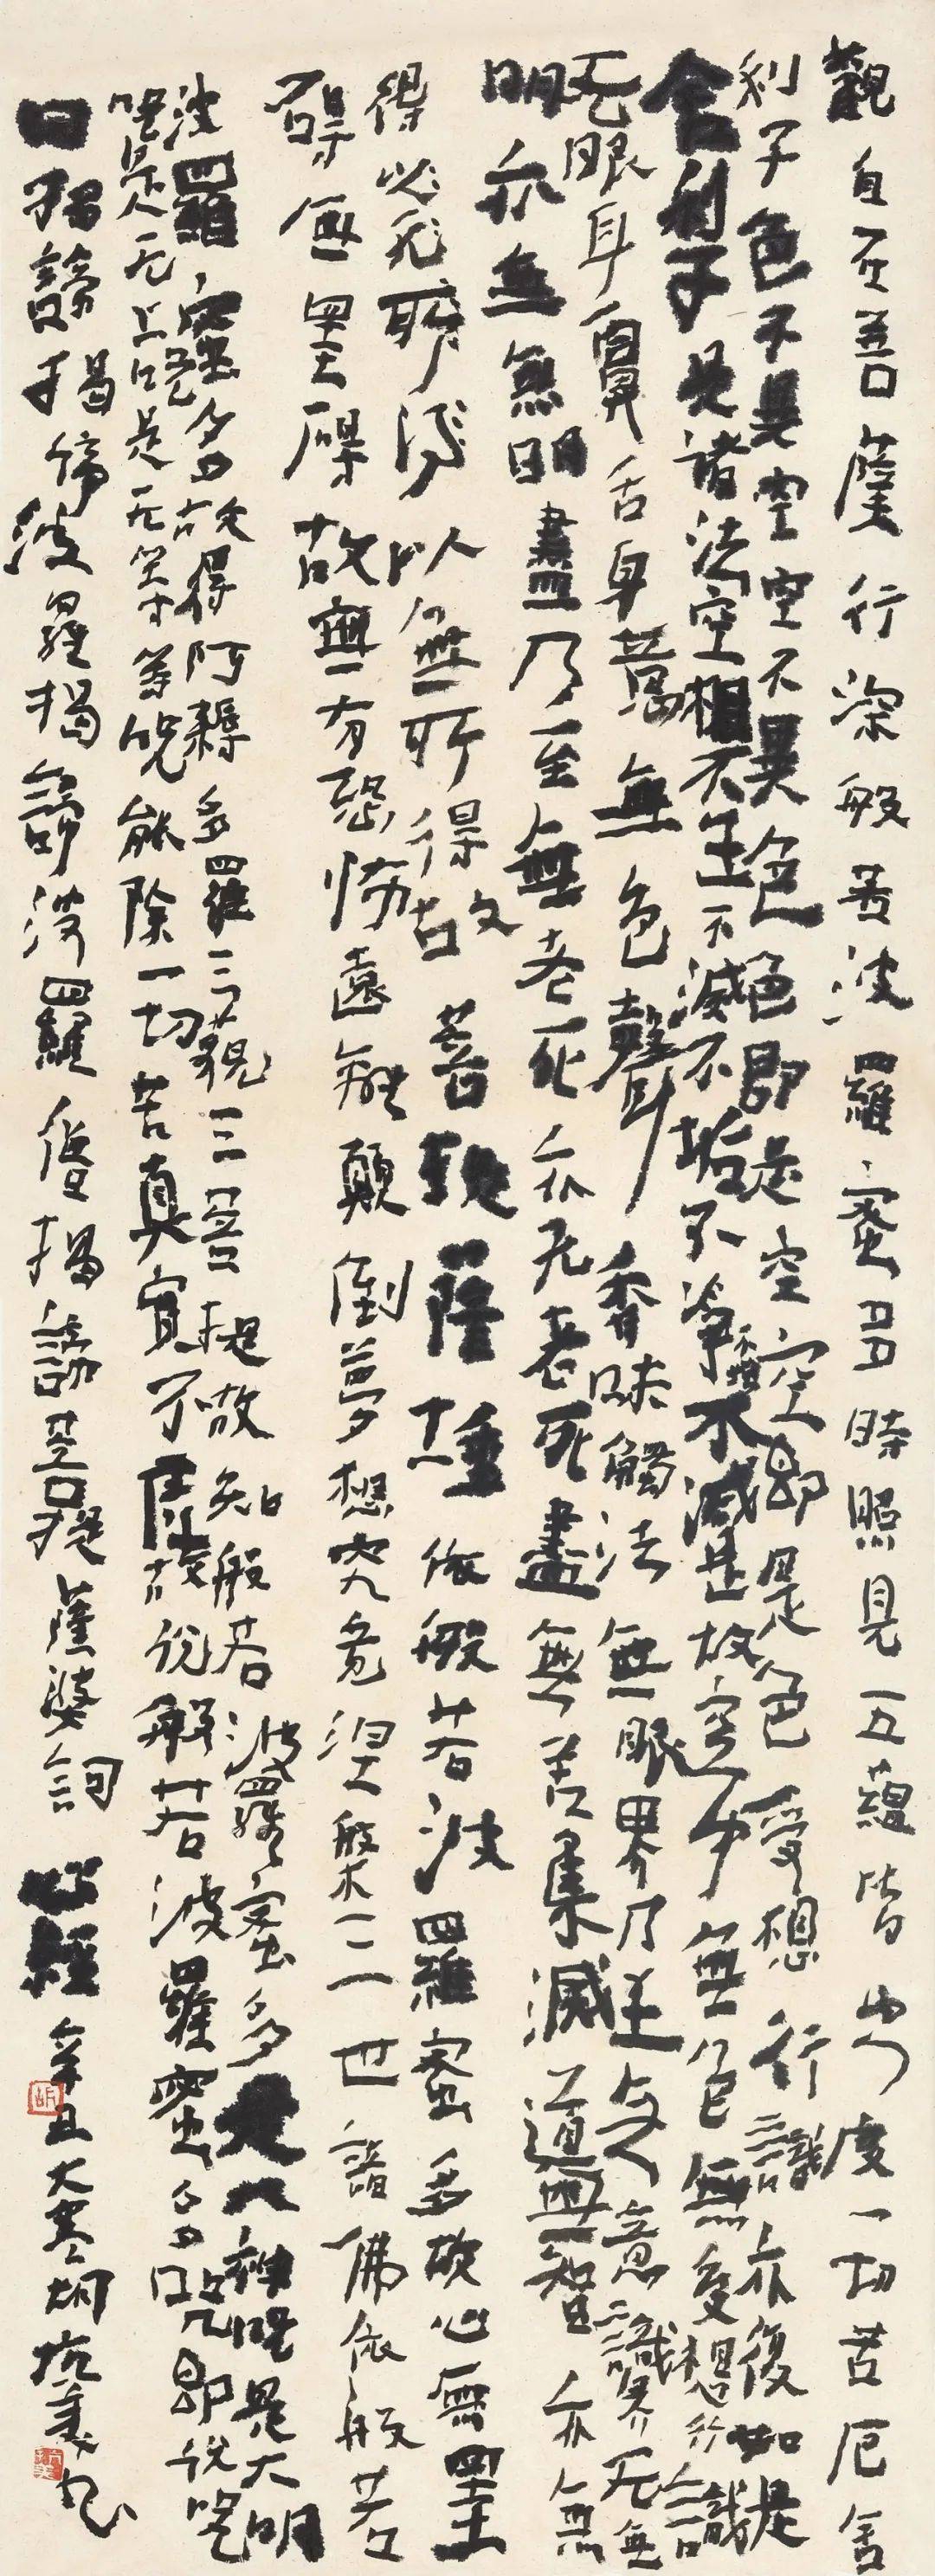 觀自在菩薩行深般若波羅蜜多時照見五蘊皆空度一切苦厄舍
利子色不異空空不異色色即是空空即是色受想行識亦復如是
舍利子是諸法空相不生不滅不垢不淨不增不減是故空中無色無受想行識
无眼耳鼻舌身意無色聲香味觸法無眼界乃至无意識界无無
明亦無無明盡乃至無老死亦无老死盡無苦集滅道無智亦無
得以无所得以無所得故菩提薩埵依般若波羅蜜多故心無罣
礙無罣礙故無有恐怖遠離顛倒夢想究竟涅槃三世諸佛依般若
波羅蜜多故得阿耨多羅三藐三菩提故知般若波羅蜜多是大神咒是大明
咒是无上咒是无等等咒能除一切苦真實不虛故說般若波羅蜜多咒即說咒
曰揭諦揭諦波羅揭諦波羅僧揭諦菩提薩婆訶 心經 辛丑大寒 抗美書